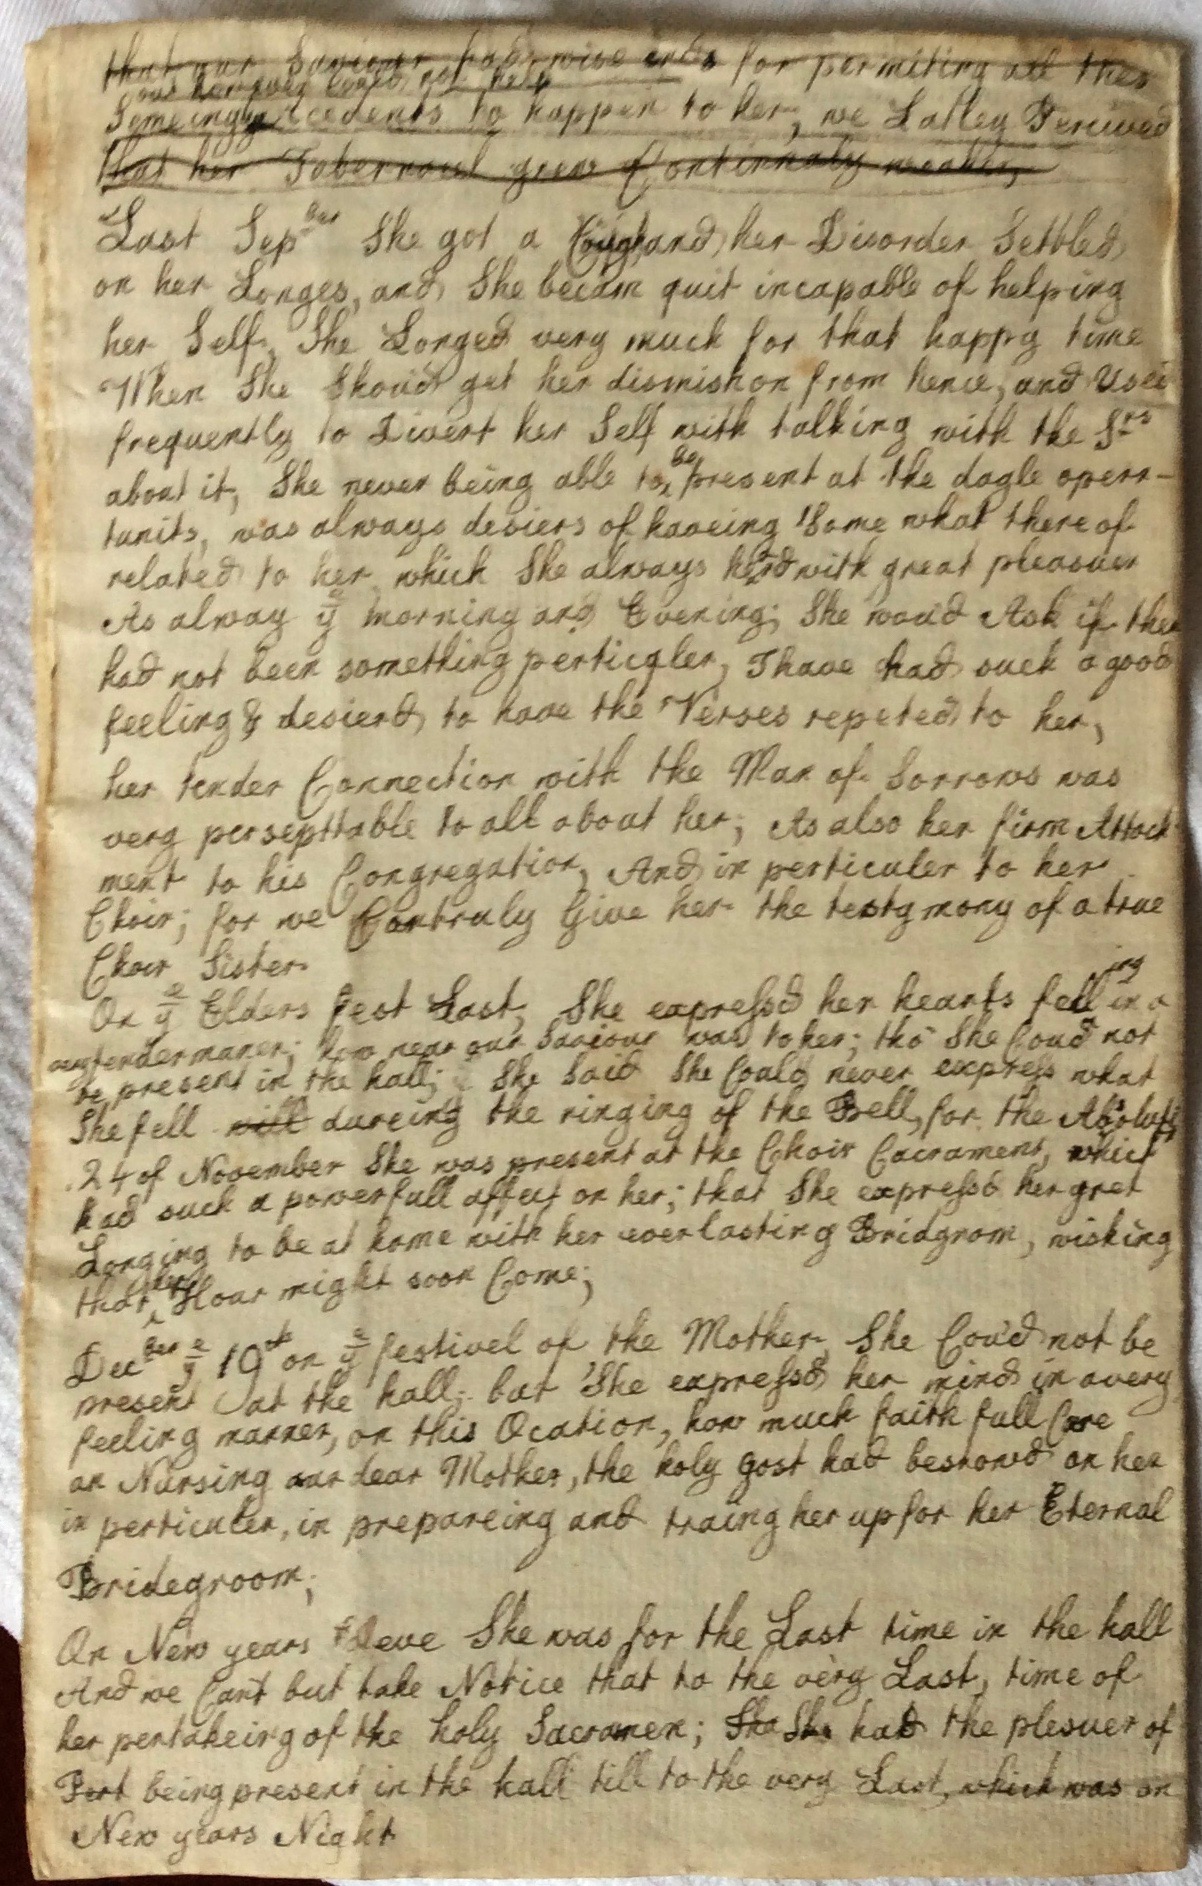 that our Saviour has wise ends for permiting all thes
our could not help
Semeingly accedents to happen to her, we Latley Perceived
that her Tabernacul grew Continualy weaker,
Last Sepber She got a Cough and her Disorder Settled
on her Longes, and She becam quit incapable of helping
her Self, She Longed very much for that happy time
When She Shoud get her dismishon from hence, and Used
frequently to Divert her Self with talking with the Srs
about it, She never being able to be present at the dayle operr-
tunits, was always desiers of haveing Some what there of
related to her which She always herd with great pleasuer
As alway ye morning and Evening; She woud Ask if ther
had not been something perticqler, I have had such a good
feeling & desierd to have the Verses repeted to her,
her tender Connection with the Man of Sorrows was
very persepttable to all about her; As also her firm Attach
ment to his Congregation, And in perticuler to her
Choir; for we Can truly Give her the testymony of a true
Choir Sister
On ye Elders fest Last, She expressd her hearts felling in a
very tender maner; how near our Saviour was to her; tho She Coud not
be present in the hall; She Said She Could never express what
She fell will dureing the ringing of the Bell, for the Absolut
24 of November She was present at the Choir Cacrament, which
had such a powerfull affect on her; that She expressd her gret
Longing to be at home with her everlasting Bridgrom, wishing
that her Hour might soon Come;
Decber ye 19th on ye festivel of the Mother, She Cou'd not be
present at the hall; but She expressd her mind in a very
feeling manner, on this Ocation, how much faith full Care
an Nursing our dear Mother, the holy gost had bestowd on her
in perticuler, in prepareing and traing her up for her Eternal
Bridegroom;
On New years eve She was for the Last time in the hall
And we Cant but take Notice that to the very Last, time of
her pertakeing of the holy Sacramen; Sha She had the plesuer of
being present in the hall till to the very Last, which was on
New years Night